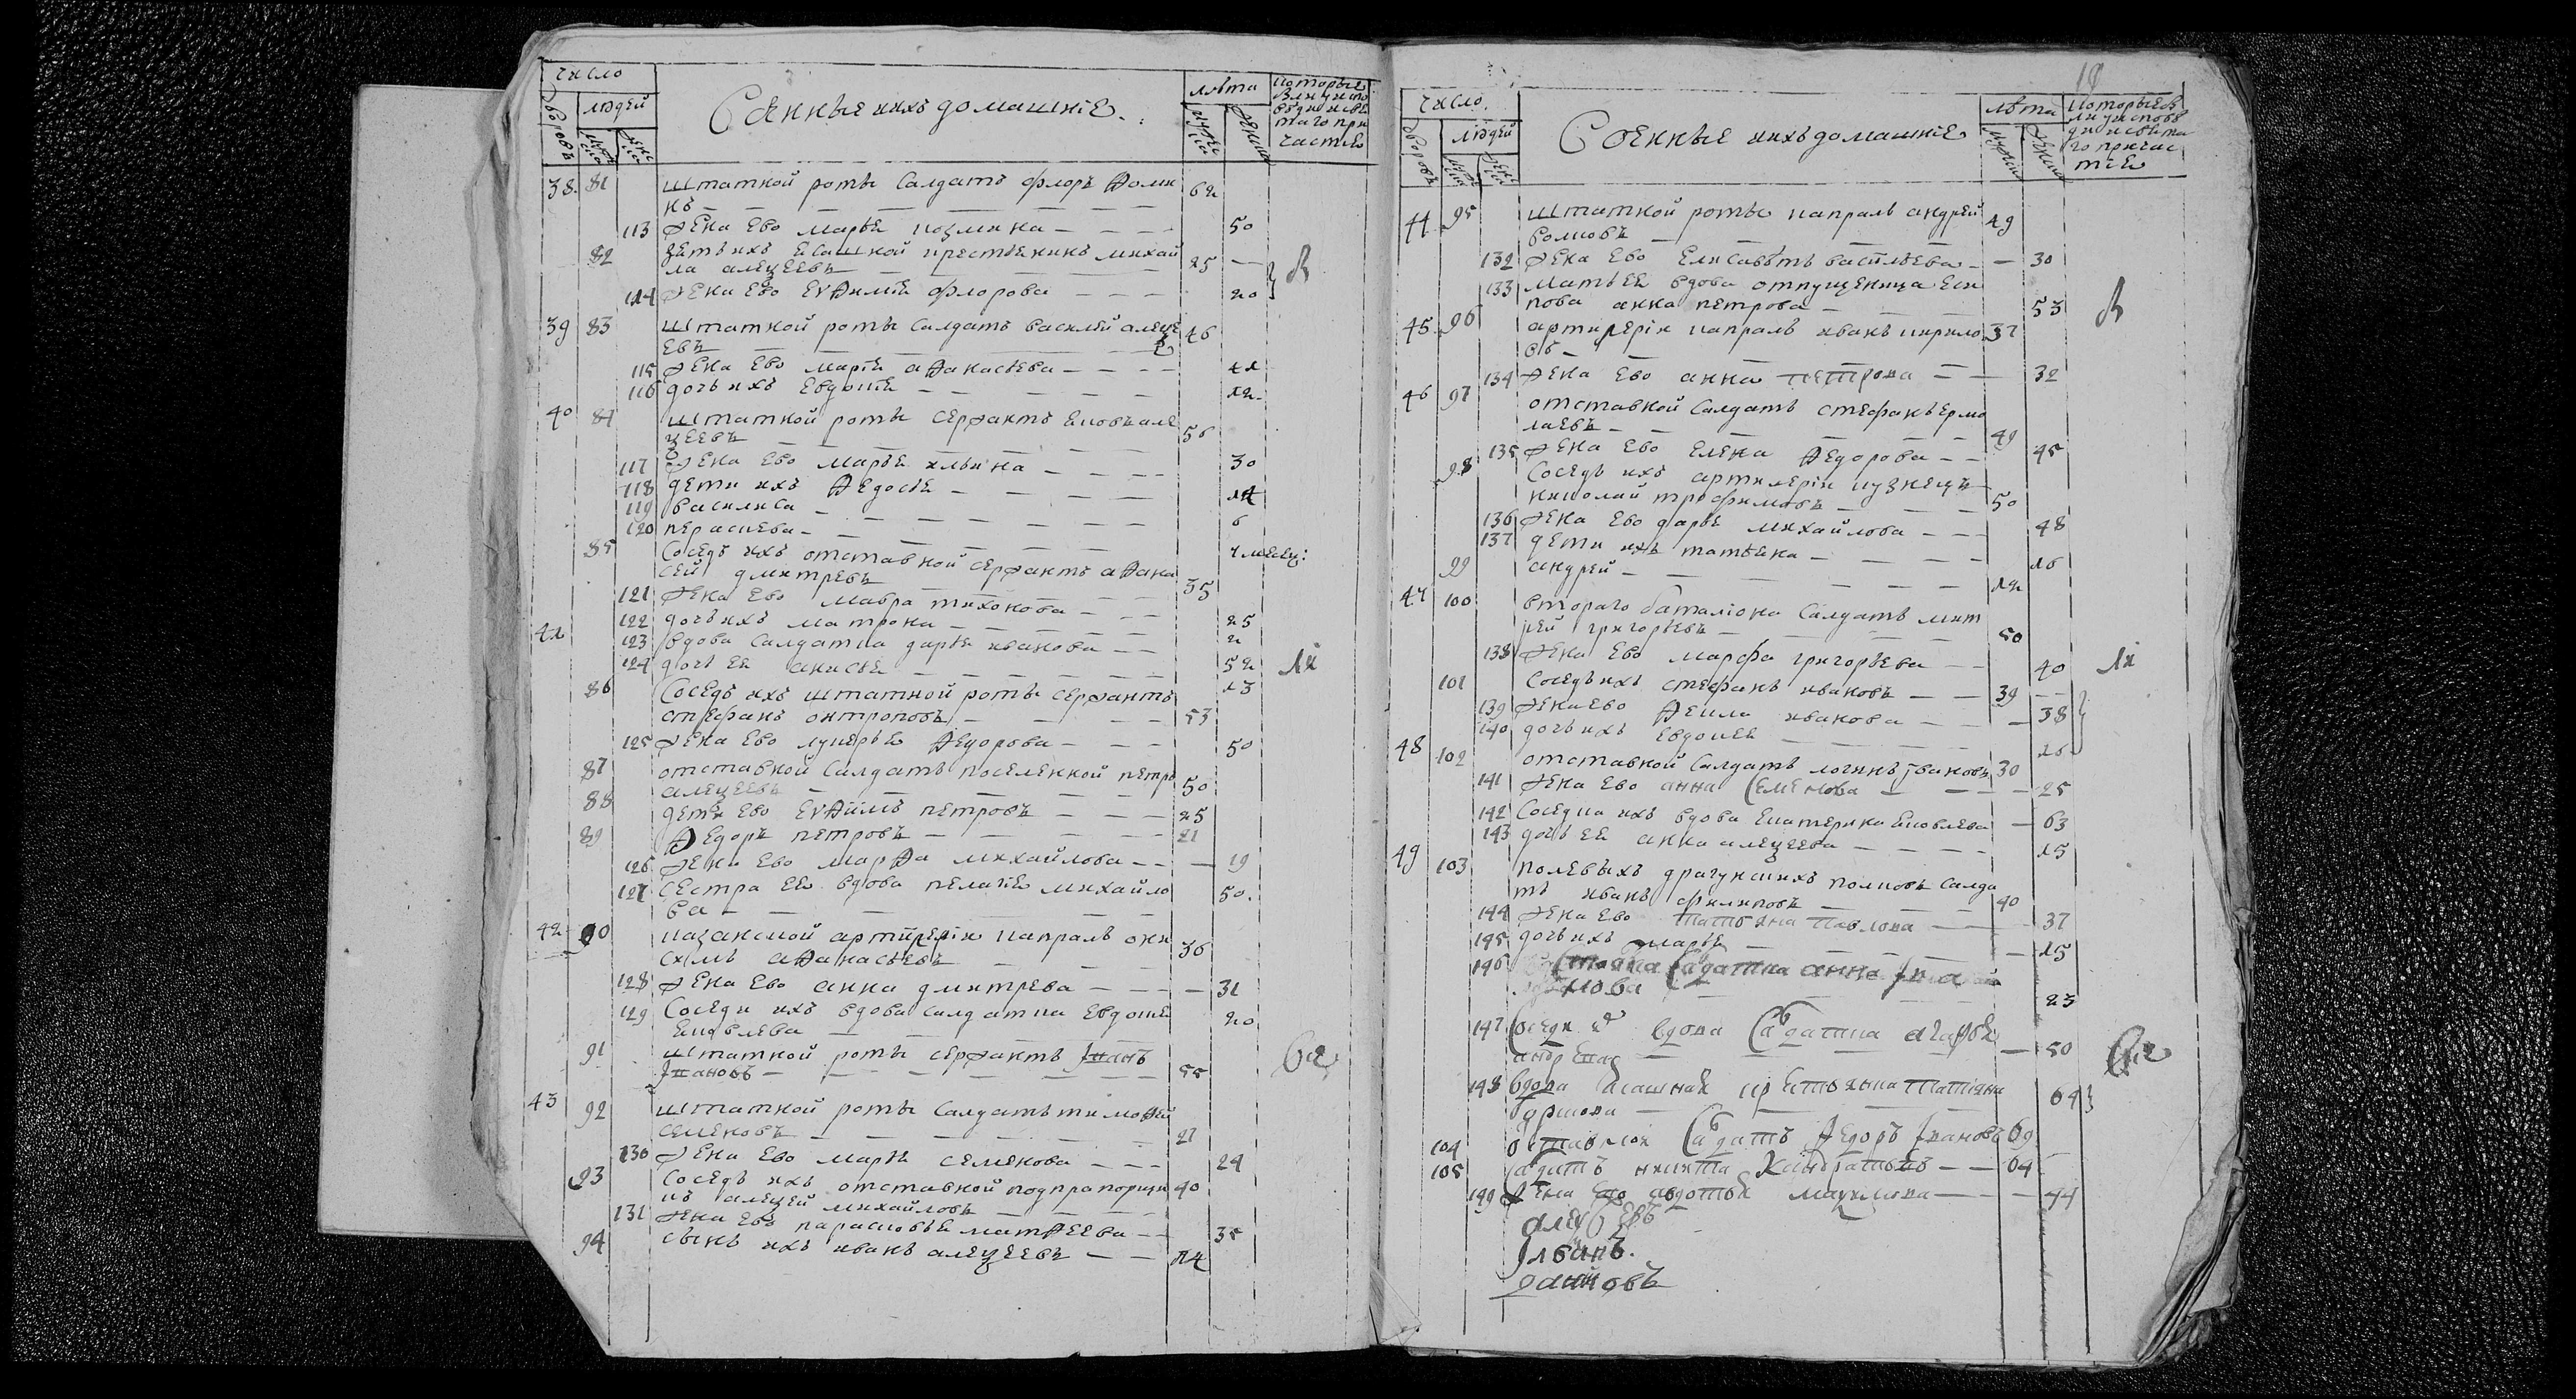 число
дворовъ
людей
муже
ска
жен
ска
Военные ихъ домашнїе
лѣта
мужес
ка
женска
которые
были у исповѣди и свѧ
таго при
частїѧ
38. 81 штатной роты салдатъ флоръ Ѳоми
нъ — 62
113 Жена ево марьѧ козмина — 50
82 зѧть ихъ ѧсашной крестьѧнинъ михай
ла алеѯеевъ — 25
114 Жена ево еѵѲимїѧ флорова — 20
39 83 штатной роты салдатъ василей алеѯ
ѣевъ — 46
115 Жена ево марїѧ аѲанасьева — 41
116 дочь ихъ евдокїѧ — 12
40 84 штатной роты сержантъ ѧковъ але
ѯеевъ — 56
117 Жена ево марьѧ ильина — 30
118 дети ихъ Ѳедосьѧ — 14
119 василиса — 6
120 параскева — 4 месец:
85 Соседъ ихъ отставной сержантъ аѲана
сей дмитревъ — 35
121 Жена ево мавра тихонова — 25
122 дочь ихъ матрона — 2
41 123 вдова салдатка дарьѧ иванова — 52
124 дочь еѧ анисьѧ — 13
86 Соседъ ихъ штатной роты сержантъ
стефанъ онтроповъ — 53
125 Жена ево лукерьѧ Ѳедорова — 50
87 отставной салдатъ поселенной петръ
алеѯеевъ — 50
88 дети ево еѵѲимъ петровъ — 25
89 Ѳедоръ петровъ — 21
126 Жена ево марѲа михайлова — 19
127 Сестра еѧ вдова пелагїѧ михайло
ва — 50.
42 90 казанской артилерїи капралъ они
симъ аѲанасьевъ — 36
128 Жена ево анна дмитрева — 31
129 Соседи ихъ вдова салдатка евдокїѧ
ѧковлева — 20
91 штатной роты сержантъ Иванъ
Ивановъ — 55
43 92 штатной роты салдатъ тимоѲей
семеновъ — 27
130 Жена ево марьѧ семенова — 24
93 Соседъ ихъ отставной подпрапорщи
къ алеѯей михайловъ — 40
131 Жена ево парасковьѧ матѲеева — 35
94 сынъ ихъ иванъ алеѯеевъ — 14
18
число
дворовъ
людей
муже
ска
жен
ска
Военные ихъ домашнїе
лѣта
мужска
женска
которые бы
ли у исповѣ
ди и свѧта
го причас
тїѧ
44 95 штатной роты капралъ андрей
волковъ — 49
132 Жена ево елисаветъ васильева — 30
133 мать еѧ вдова отпущеница еси
пова анна петрова — 53
45 96 артилерїи капралъ иванъ кирило
въ — 37
134 Жена ево анна петрова — 32
46 97 отставной салдатъ стефанъ ермо
лаевъ — 49
135 Жена ево елена Ѳедорова — 45
98 Соседъ ихъ артилерїи кузнецъ
николай трофимовъ — 50
136 Жена ево дарьѧ михайлова — 48
137 дети ихъ татьѧна — 16
99 андрей — 12
47 100 втораго баталїона салдатъ мит
рей григорьевъ — 50
138 Жена ево марфа григорьева — 40
101 соседъ ихъ стефанъ ивановъ — 39
139 Жена ево Ѳекла иванова — 38
140 дочь ихъ евдокїѧ — 16
48 102 отставной салдатъ логинъ Ивановъ 30
141 Жена ево анна Семенова — 25
142 Соседка ихъ вдова екатерина ѧковлева — 63
143 дочь еѧ анна алеѯеева — 15
49 103 полевыхъ драгунскихъ полковъ салда
тъ иванъ филиповъ — 40
144 Жена ево татьѧна павлова — 37
145 дочь ихъ марьѧ — 15
146 салдатка анна
23
147 Соседи вдова Салдатка агафьѧ
50
148 вдова ѧсашнаѧ крестьѧнка татїѧна
64
104 отставной Салдатъ Ѳедоръ Ивановъ 69
105 Салдатъ никита Кандратьевъ — 64
149 Жена ево авдотьѧ маѯимова — 44
алеѯѣевъ